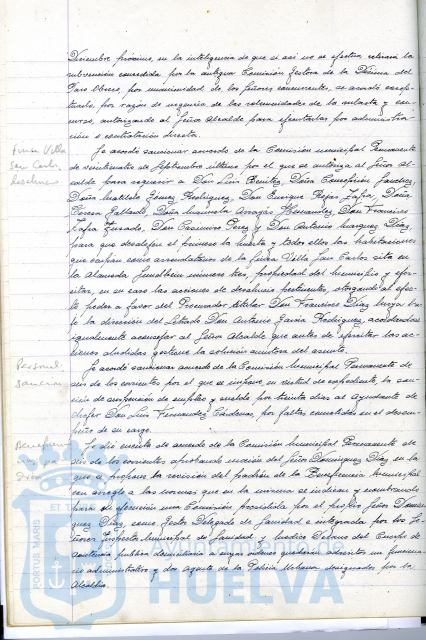 Diciembre próximo, en la inteligencia de que si así no se efectúa retirará la
subvención concedida por la antigua Comisión Gestora de la Décima del
Paro Obrero, por unanimidad de los Señores concurrentes, se acordó excep-
tuarlo, por razón de urgencia de las solemnidades de la subasta y con-
curso, autorizando al Señor Alcalde para efectuarlas por administra-
ción o contratación directa.
Finca Villa
San Carlos
desahucio
Se acordó sancionar acuerdo de la Comisión municipal Permanente
de veintiuno de Septiembre último por el que se autoriza al Señor Al-
calde para requerir a Don Luis Benítez, Doña Concepción
Doña Matilde Gómez Rodríguez, Don Enrique Rojas Zafra, Doña
Teresa Gallardo, Doña Manuela Arroyo Hernández, Don Francisco
Zafra Jurado, Don Casimiro Pérez y Don Antonio Márquez Díaz,
para que desalojen el primero la huerta y todos ellos las habitaciones
que ocupan como arrendatarios de la finca Villa San Carlos sita en
la Alameda Sundheim número tres, propiedad del municipio y ejer-
citar, en su caso las acciones de desahucio pertinentes, otorgando al efec-
to poder a favor del Procurador titular Don Francisco Díaz ba-
jo la dirección del Letrado Don Antonio García Rodríguez, acordándose
igualmente aconsejar al Señor Alcalde que antes de ejercitar las ac-
ciones aludidas gestione la solución amistosa del asunto.
Personal
sanción
Se acordó sancionar acuerdo de la Comisión Municipal Permanente de
seis de los corrientes por el que se impone, en virtud de expediente, la san-
ción de suspensión de empleo y sueldo por treinta días al Ayudante de
chofer Don Luis Fernández Cárdenas, por faltas cometidas en el desem-
peño de su cargo.
Beneficen-
cia
Se dio cuenta de acuerdo de la Comisión Municipal Permanente de
seis de los corrientes aprobando moción del Señor Domínguez Díaz en la
que se propone la revisión del padrón de la Beneficencia Municipal
con arreglo a las normas que en la misma se indican y nombrando
para su ejecución una Comisión presidida por el propio Señor Domín-
guez Díaz, como Gestor Delegado de Sanidad e integrada por los Se-
ñores Inspector Municipal de Sanidad y médico Decano del Cuerpo de
Asistencia pública domiciliaria a cuyas órdenes quedarán adscritos un funciona-
rio administrativo y dos agentes de la Policía Urbana designados por la
Alcaldía.
PORTUS MARIS
HUELVA